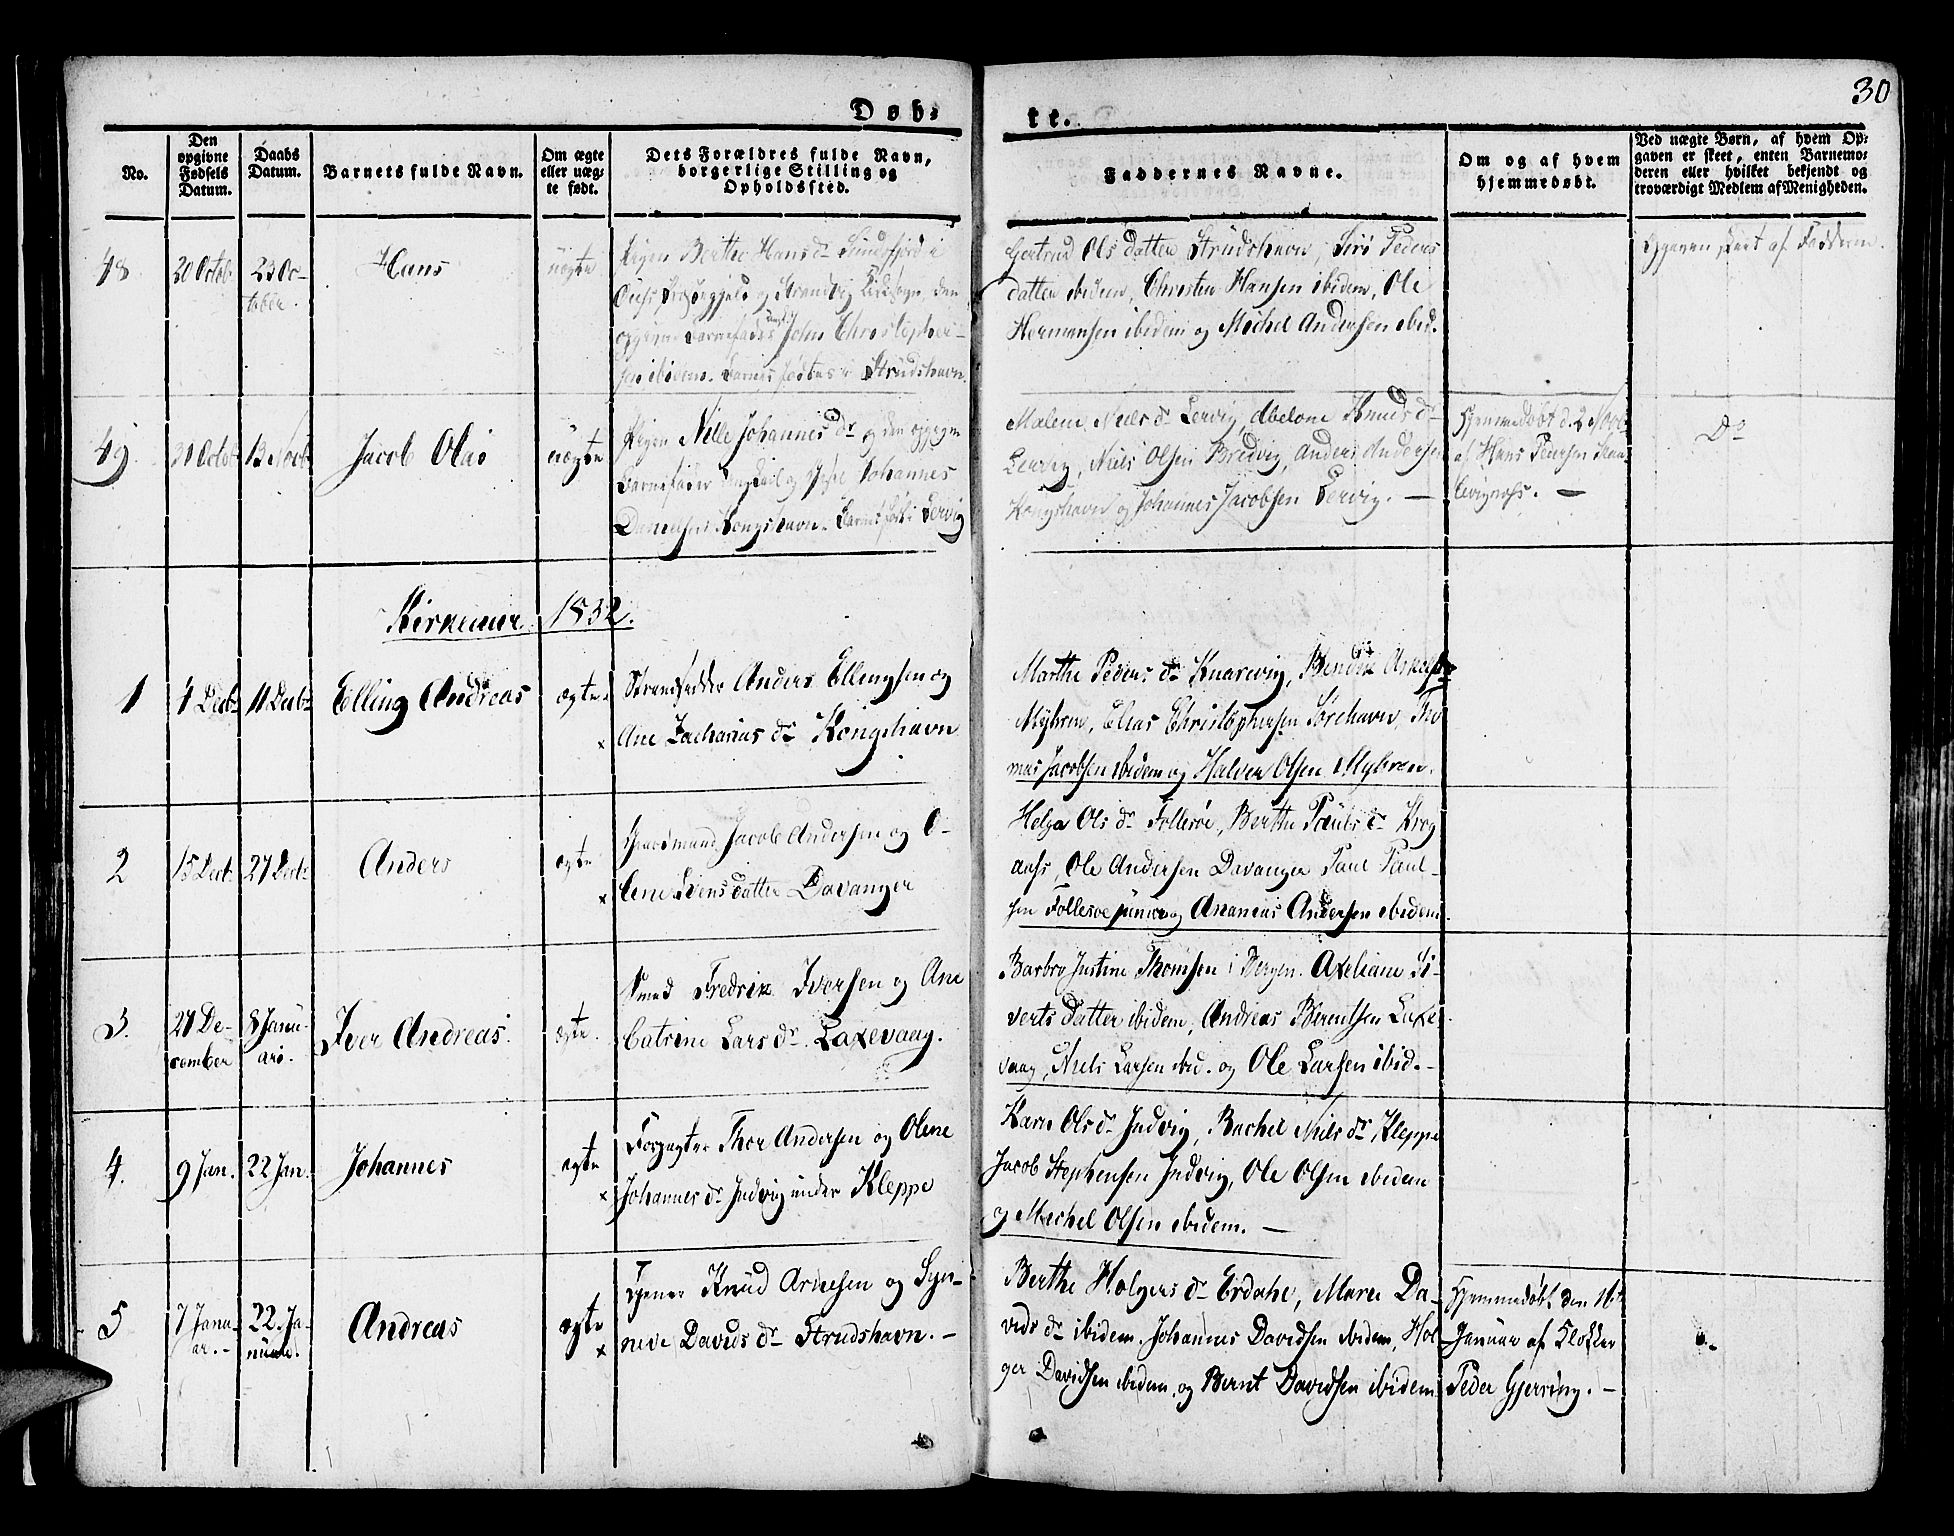 30
Døb-
te.
No.
Den
opgivne
Fødsels
Datum.
Daabs
Datum.
Barnets fulde Navn.
Om ægte
eller uæg-
te født.
Dets Forældres fulde Navn,
borgerlige Stilling og
Opholdssted.
Faddernes Navne.
Om og af hvem
hjemmedøbt.
Ved uægte Børn, af hvem Op-
gaven er skeet, enten Barnemo-
deren eller hvilket bekjendt og
troværdigt Medlem af Menigheden.
48
20 Octob:
23 Oc-
tober.
Hans
uægte
Pigen Berthe Hans dr Sundfjord i
Præstegjeld og Strandvig Kirkesogn, den
opgivne Barnefader Ungk. John Christopher-
sen ibidem. Barnet fødtes i Strudshavn.
Gertrud Ols datter Strudshavn, Siri Peders
datter ibidem, Christen Hansen ibidem, Ole
Hermansen ibidem og Michel Andersen ibid.
Opgaven skeet af Fadderne.
49
13 Novb:
Jacob Olai
uægte
Pigen Nille Johannes dr og den opgivne
Barnefader Ungkarl og Johannes
Danielsen Kongshavn. Barnet født i Lervig
Malene Niels dr Lervig, Abelone Knuds dr
Lervig, Niels Olsen Bredvig, Anders Andersen
Kongshavn og Johannes Jacobsen Lervig. —
Hjemmedøbt d. 2 Novb:
af Hans Pedersen
. —
Do
Kirkeaar 1832.
1
4 Decb:
11 Decb:
Elling Andreas
ægte
x
Strandsidder Anders Ellingsen og
Ane Zacharias dr Kongshavn
Marthe Peders dr Knarrevig, Bendix
Myhren, Elias Christophersen Sørehavn, Tho
mas Jacobsen ibidem og Halvor Olsen Myhren.
2
15 Decb:
27 Decb:
Anders
ægte
x
Gaardmand Jacob Andersen og O-
lene Svens datter Davanger
Helga Ols dr Follesøe, Berthe Pouls dr Krog
aas, Ole Andersen Davanger Paul Paul-
sen Follesøe junior og Ananias Andersen ibidem.
3.
27 De-
cember
8 Janu-
ari.
Iver Andreas.
ægte.
Smed Fredrik Iversen og Ane
Catrine Lars dr Laxevaag.
Barbro Justine Thomsen i Bergen. Axeliane Si-
verts datter ibidem, Andreas Berentsen Laxe
vaag, Niels Larsen ibid. og Ole Larsen ibid. -
4.
9 Jan.
22 Jan.
Johannes
ægte
x
Forpagter Thor Andersen og Olene
Johannes dr Indvig under Kleppe
Karn Ols dr Indvig, Rachel Niels dr Kleppe
Jacob Stephensen Indvig, Ole Olsen ibidem
og Michel Olsen ibidem. —
5
7 Janu-
ar. -
22. Ja-
nuar.
Andreas
ægte
x
Tjener Knud Arnesen og Syn-
neve Davids dr Strudshavn. -
Berthe Holgers dr Erdahl, Maren Da-
vids dr ibidem, Johannes Davidsen ibidem, Hol-
ger Davidsen ibidem, og Bernt Davidsen ibidem
Hjemmedøbt den 16de
Januar af Klokker
Peder Gjerring. -